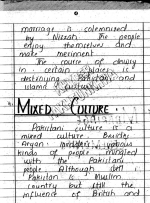 marriage is solemnised
by Nikah. The people
enjoy themselves and
make merriment.
The course of dowry
in certain places is
destroying Pakistan and
islamic culture.
MIXED CULTURE:
Pakistani culture is a
mixed culture. Besides
Aryan, various
kinds of people mingled
with the Pakistani
people. Although
Pakistan is Muslim
country but still the
influence of British and